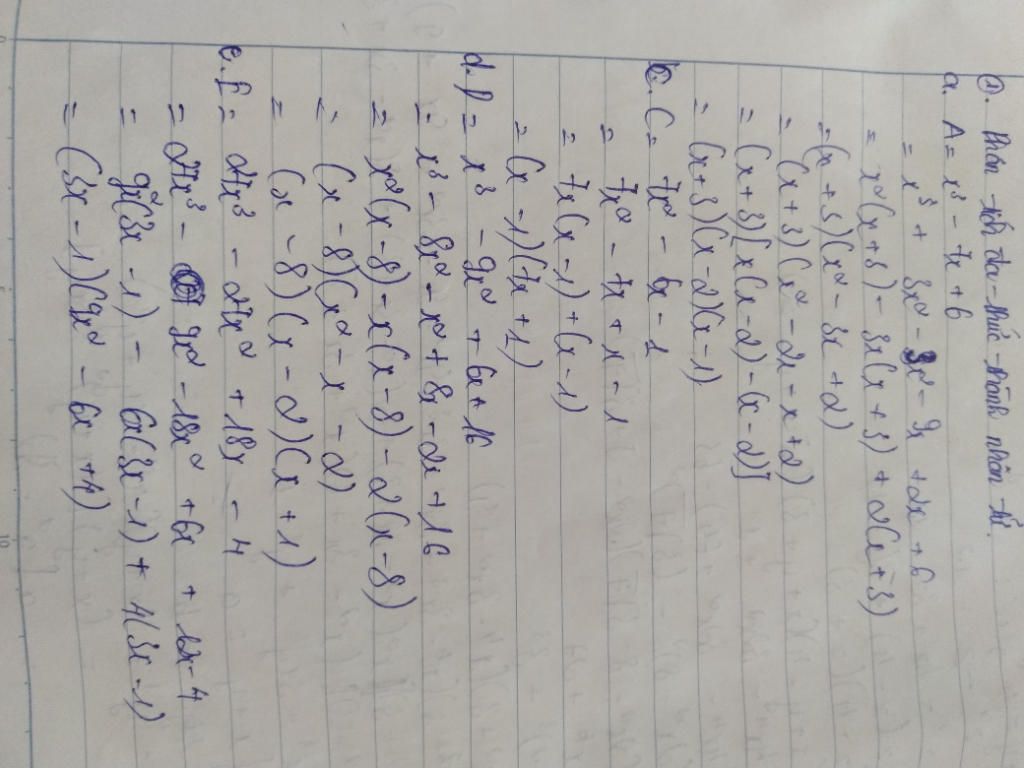 ①. Phân tích đa thức thành nhân tử.
a. A = x³ - 7x + 6
= x³ + 3x² - 3x² - 9x + 2x + 6
= x²(x + 3) - 3x(x + 3) + 2(x + 3)
= (x + 3)(x² - 3x + 2)
= (x + 3)(x² - 2x - x + 2)
= (x + 3)[x(x - 2) - (x - 2)]
= (x + 3)(x - 2)(x - 1)
c. C = 7x² - 6x - 1
= 7x² - 7x + x - 1
= 7x(x - 1) + (x - 1)
= (x - 1)(7x + 1)
d. D = x³ - 9x² + 6x + 16
= x³ - 8x² - x² + 8x - 2x + 16
= x²(x - 8) - x(x - 8) - 2(x - 8)
= (x - 8)(x² - x - 2)
= (x - 8)(x - 2)(x + 1)
e. f = 27x³ - 27x² + 18x - 4
= 27x³ - 9x² - 18x² + 6x + 12x - 4
= 9x²(3x - 1) - 6x(3x - 1) + 4(3x - 1)
= (3x - 1)(9x² - 6x + 4)